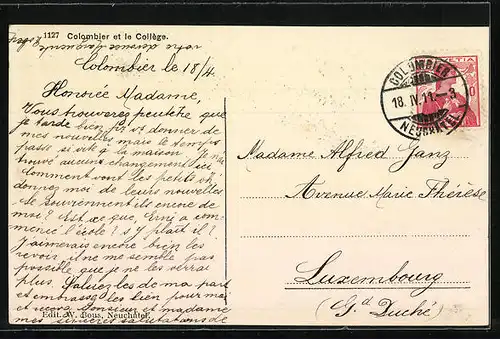 1127 Colombier et le Collège.
votre adresse
Colombier le 18/4
Honorée Madame,
Vous trouverez peutêtre que
je tarde bien, pr vs donner de
mes nouvelles mais le temps
passe si vite à la maison. Je n'ai
trouvé aucun changement ici
Comment vont les petits vs
donnez moi de leurs nouvelles
se souviennent ils encore de
moi? Est ce que, Erni a com-
mencé l'école? s'y plait il?
J'aimerais encore bien les
revoir il ne me semble pas
possible que je ne les verrai
plus. Saluez les de ma part
et embrassez les bien pour moi
et recevez Monsieur et madame
mes sincères salutations de
Edit. W. Bous, Neuchâtel.
COLOMBIER
18. IV. 11. – 3
NEUCHATEL
HELVETIA
10
Madame Alfred Ganz
Avenue Marie Thérèse
Luxembourg
(Gd Duché)